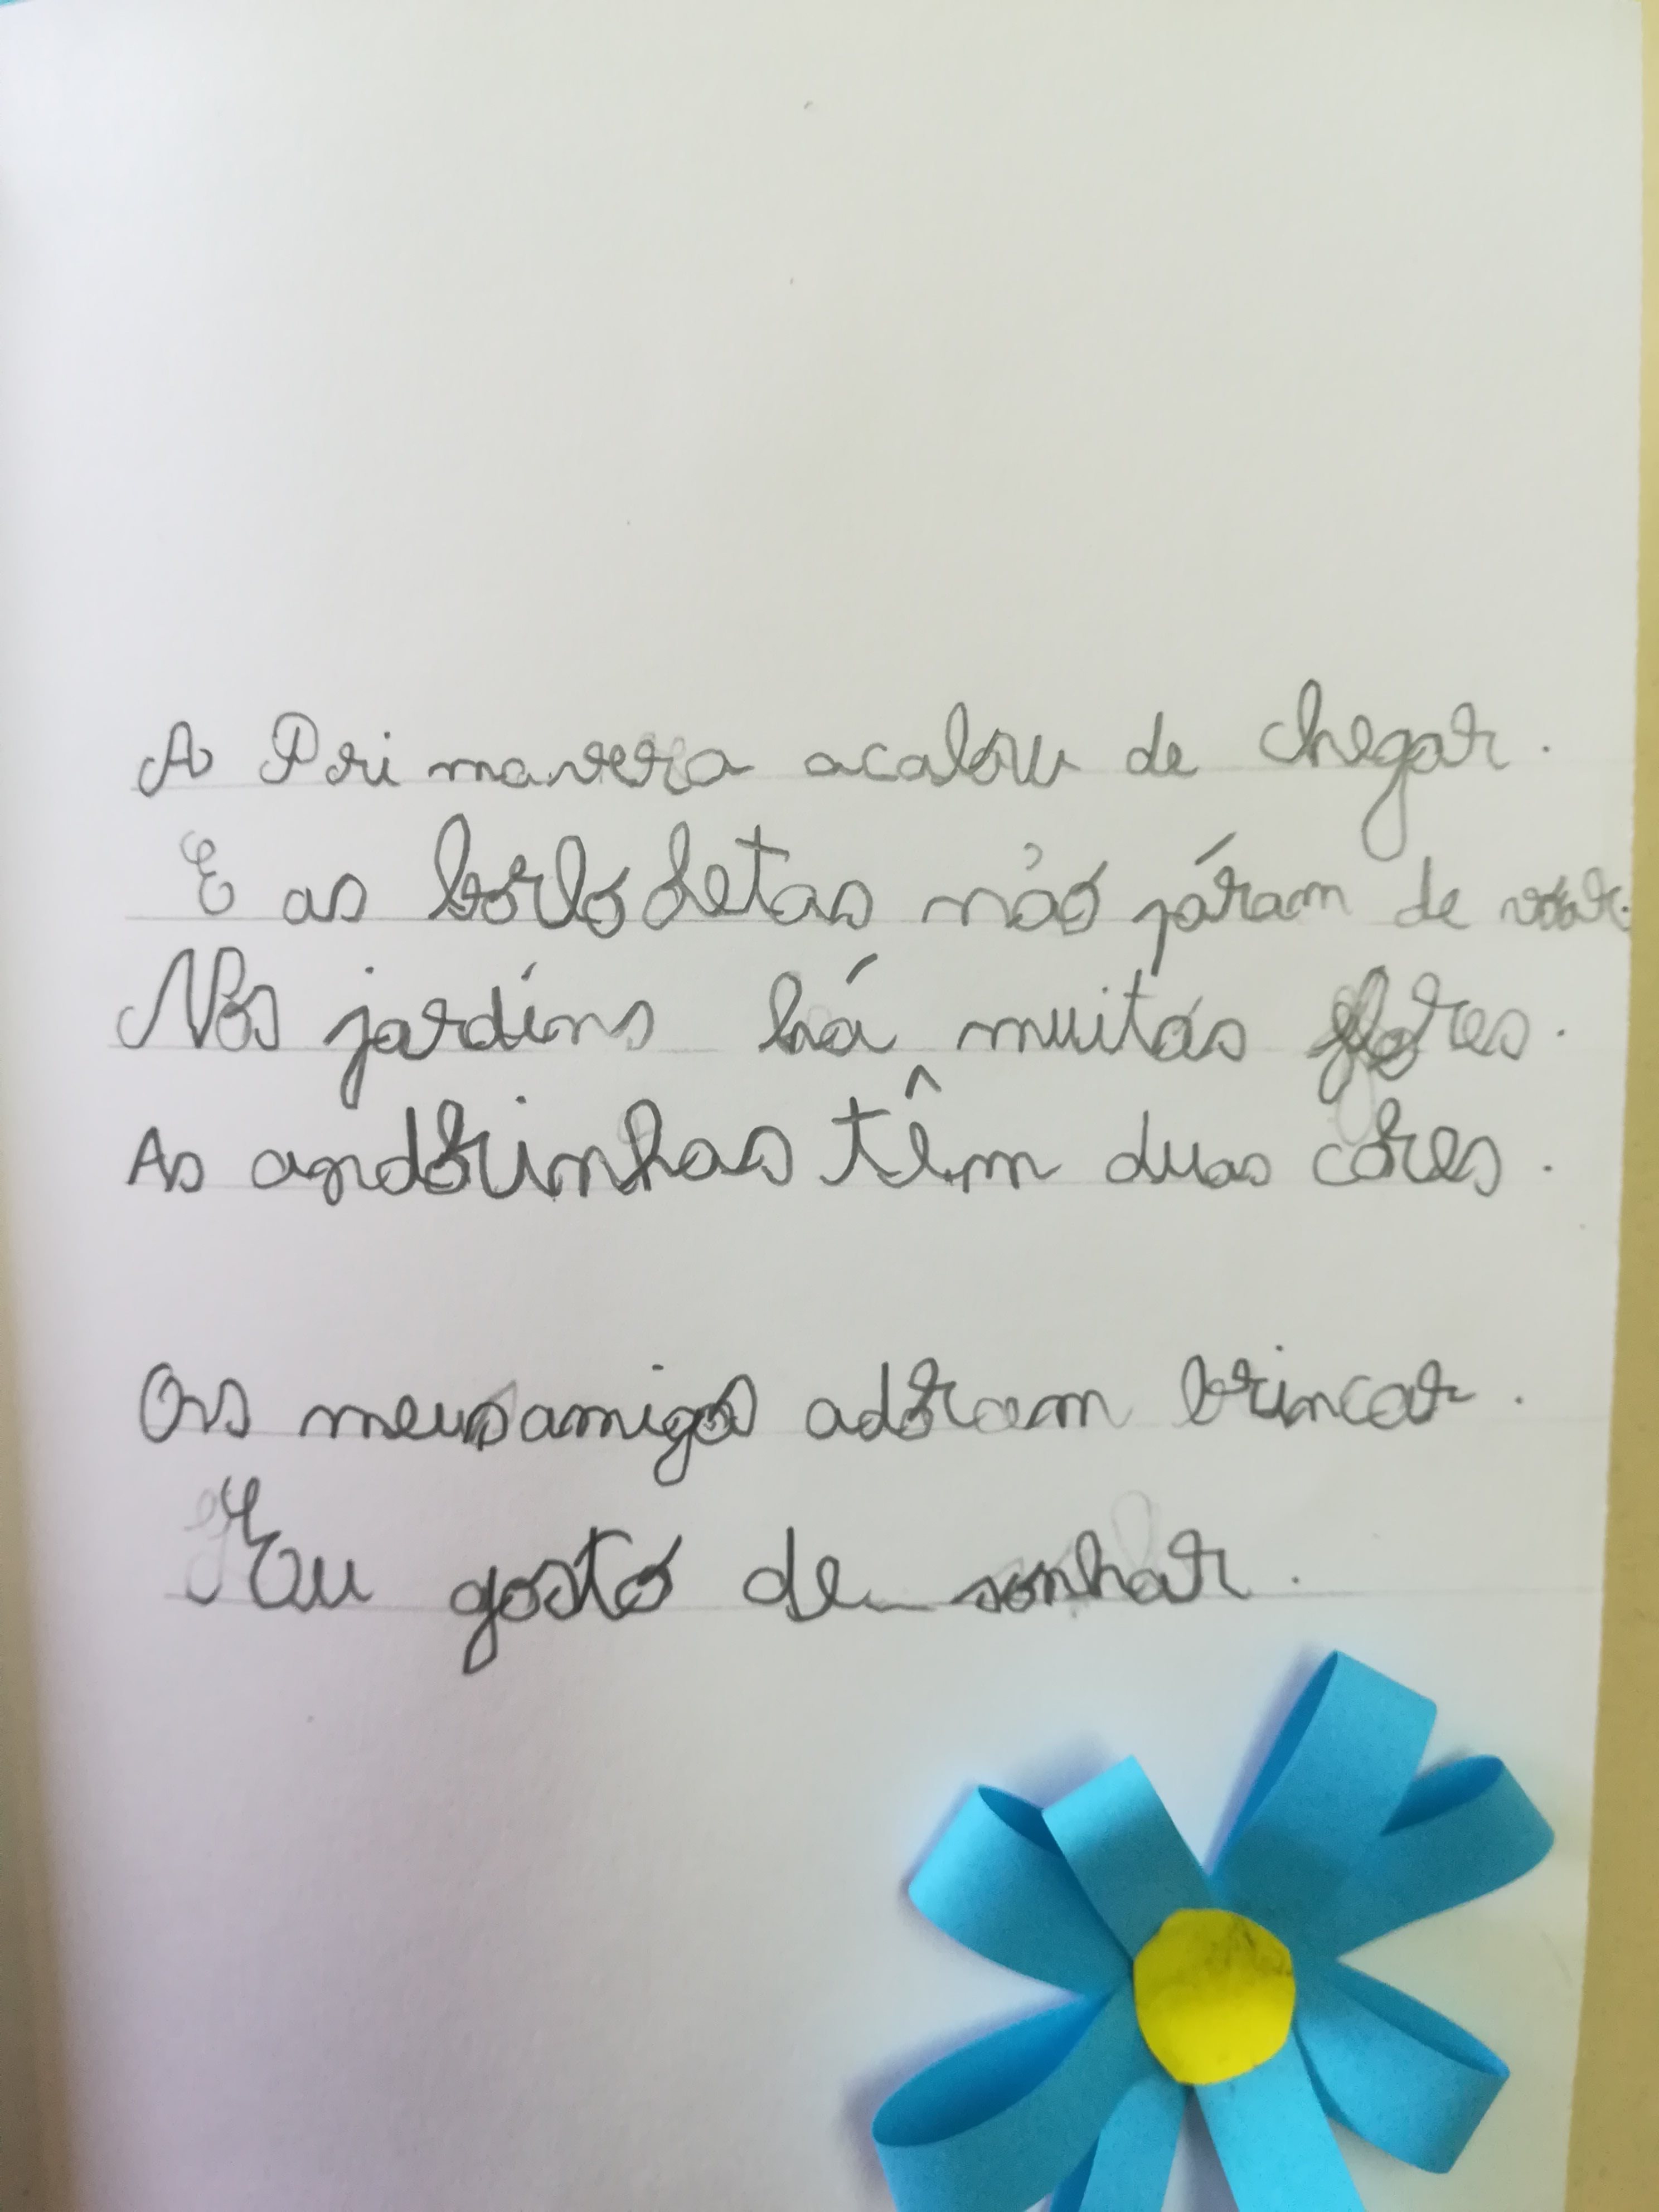 A Primavera acabou de chegar.
E as borboletas não páram de voar.
Nos jardins há muitas flores.
As andorinhas têm duas cores.
Os meus amigos adoram brincar.
Eu gosto de sonhar.